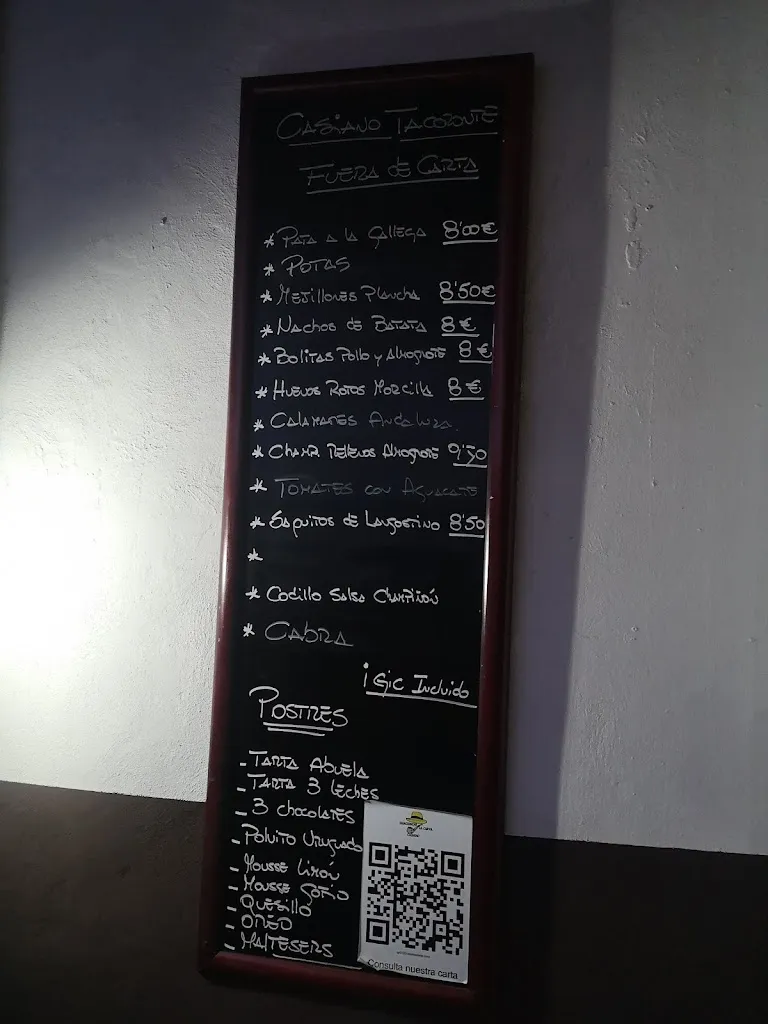 CASIANO TACORONTE
FUERA DE CARTA
* PATA A LA GALLEGA 8'00€
* POTAS
* MEJILLONES PLANCHA 8'50€
* NACHOS DE BATATA 8€
* BOLITAS POLLO Y ALMOGROTE 8€
* HUEVOS ROTOS MORCILLA 8€
* CALAMARES ANDALUZA.
* CHAMP. RELLENOS ALMOGROTE 9'50
* TOMATES CON AGUACATE
* SAQUITOS DE LANGOSTINO 8'50
*
* CODILLO SALSA CHAMPIÑÓN
* CABRA
IGIC INCLUIDO
POSTRES
- TARTA ABUELA
- TARTA 3 LECHES
- 3 CHOCOLATES
- POLVITO URUGUAYO
- MOUSSE LIMÓN
- MOUSSE GOFIO
- QUESILLO
- OREO
- MALTESERS
Consulta nuestra carta